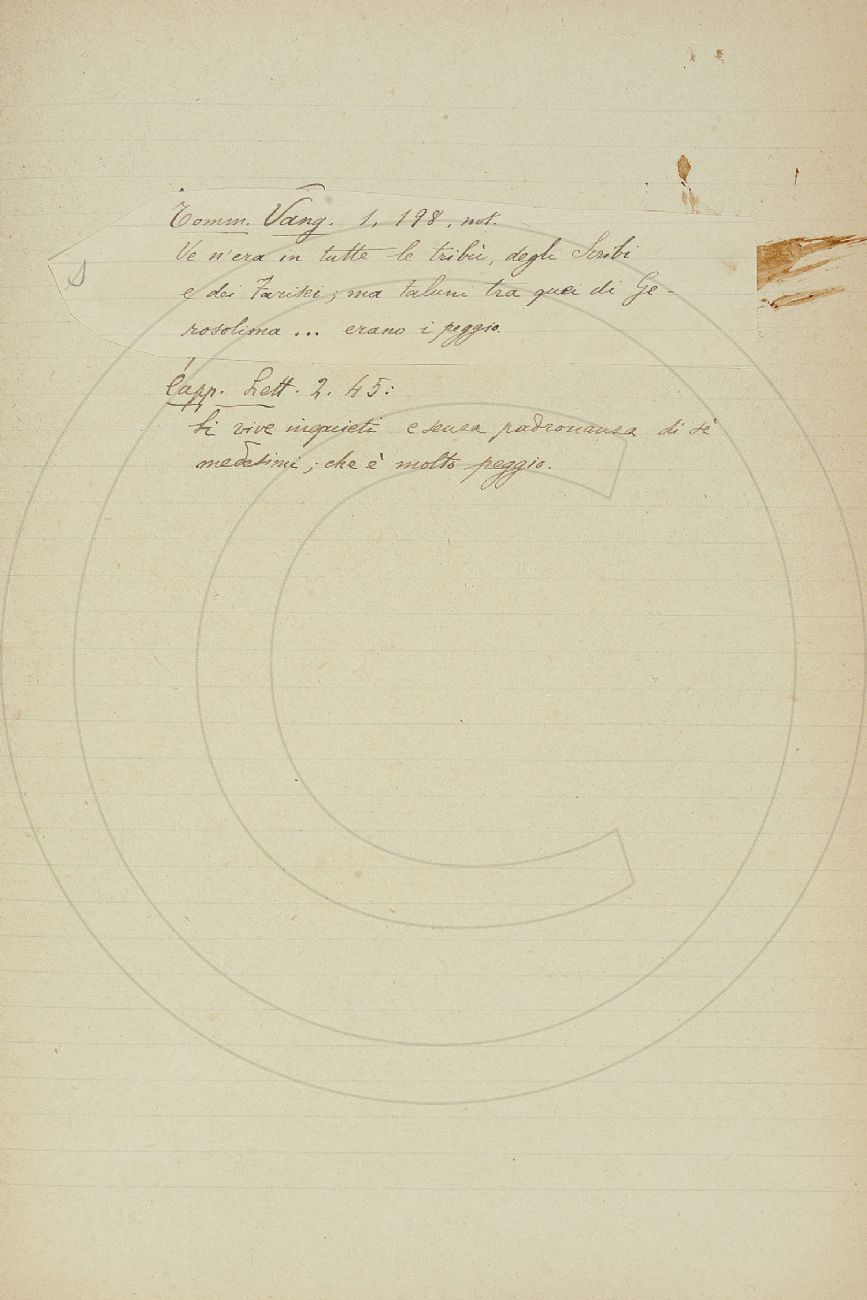 Tomm. Vang. 1, 198, not.
Ve n'era in tutte le tribù, degli Scribi
e dei Farisei; ma taluni tra quei di Ge-
rosolima ... erano i peggio.
Capp. Lett. 2. 45:
Si vive inquieti e senza padronanza di sè
medesimi; che è molto peggio.